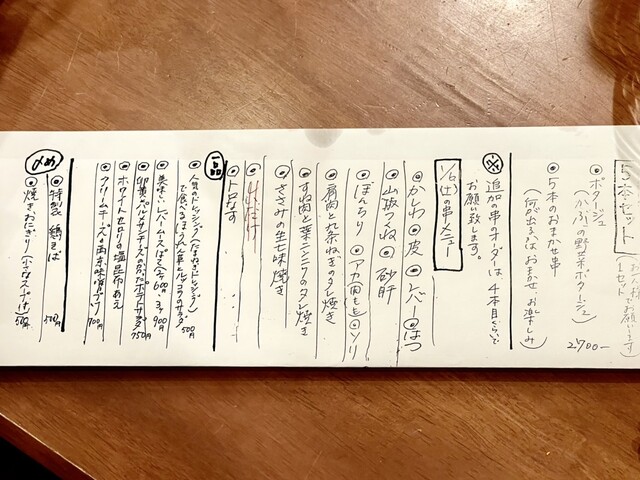 5本セット
(お一人様でお願いします)
1セット
◎ポタージュ
(かぶの野菜ポタージュ)
◎5本のおまかせ串
(何が出るかはおまかせ お楽しみ)
2700-
追加の串のオーダーは4本目ぐらいで
お願い致します。
1/6(土)の串メニュー
◎かしわ ◎皮 ◎レバー ◎はつ
◎山椒つくね ◎砂肝
◎ぼんちり ◎ソリ
◎肩肉と九条ねぎのタレ焼き
◎すね肉と葉ニンニクのタレ焼き
◎ささみの生七味焼き
◎しいたけ
◎トロなす
一品
◎人気のドレッシング(たまねぎドレッシング)
で食べるほうれん草とルッコラのサラダ 500円
◎美味しいレバーペースト 900円
750円
◎ホワイトセロリの塩昆布あえ
◎クリームチーズの西京味噌 700円
〆め
◎特製 鶏そば
◎焼きおにぎり(小さなスープ付) 500円